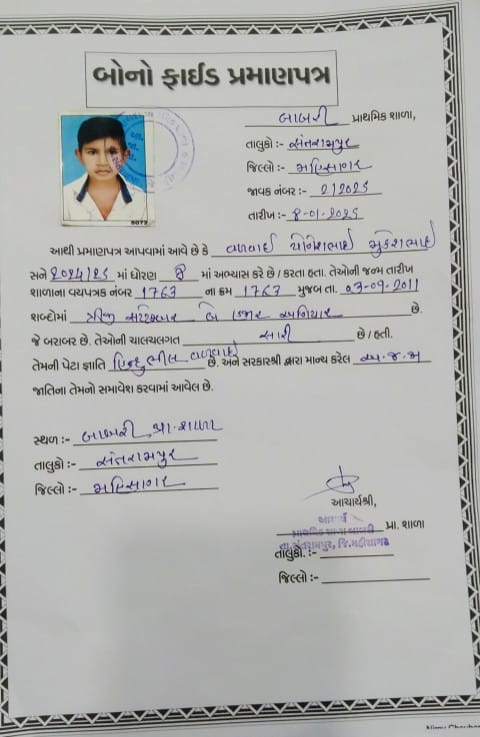 બોનો ફાઈડ પ્રમાણપત્ર
બાબરી પ્રાથમિક શાળા,
તાલુકો :- સંતરામપુર
જિલ્લો :- મહિસાગર
જાવક નંબર :- 2/2025
તારીખ :- 8-01-2025
5073
આથી પ્રમાણપત્ર આપવામાં આવે છે કે વળવાઈ યોગેશભાઈ મુકેશભાઈ
સને 2024/25 માં ધોરણ 8 માં અભ્યાસ કરે છે / કરતા હતા. તેઓની જન્મ તારીખ
શાળાના વયપત્રક નંબર 1763 ના ક્રમ 1763 મુજબ તા. 03-09-2011
શબ્દોમાં ત્રીજી સપ્ટેમ્બર બે હજાર અગિયાર છે.
જે બરાબર છે. તેઓની ચાલચલગત સારી છે / હતી.
તેમની પેટા જ્ઞાતિ હિન્દુ ભીલ વળવાઈ છે. અને સરકારશ્રી દ્વારા માન્ય કરેલ અ.જ.જા
જાતિના તેમનો સમાવેશ કરવામાં આવેલ છે.
સ્થળ :- બાબરી પ્રા. શાળા
તાલુકો :- સંતરામપુર
જિલ્લો :- મહિસાગર
આચાર્યશ્રી,
આચાર્ય
પ્રાથમિક શાળા બાબરી પ્રા. શાળા
તા. સંતરામપુર, જિ. મહીસાગર
તાલુકો :-
જિલ્લો :-